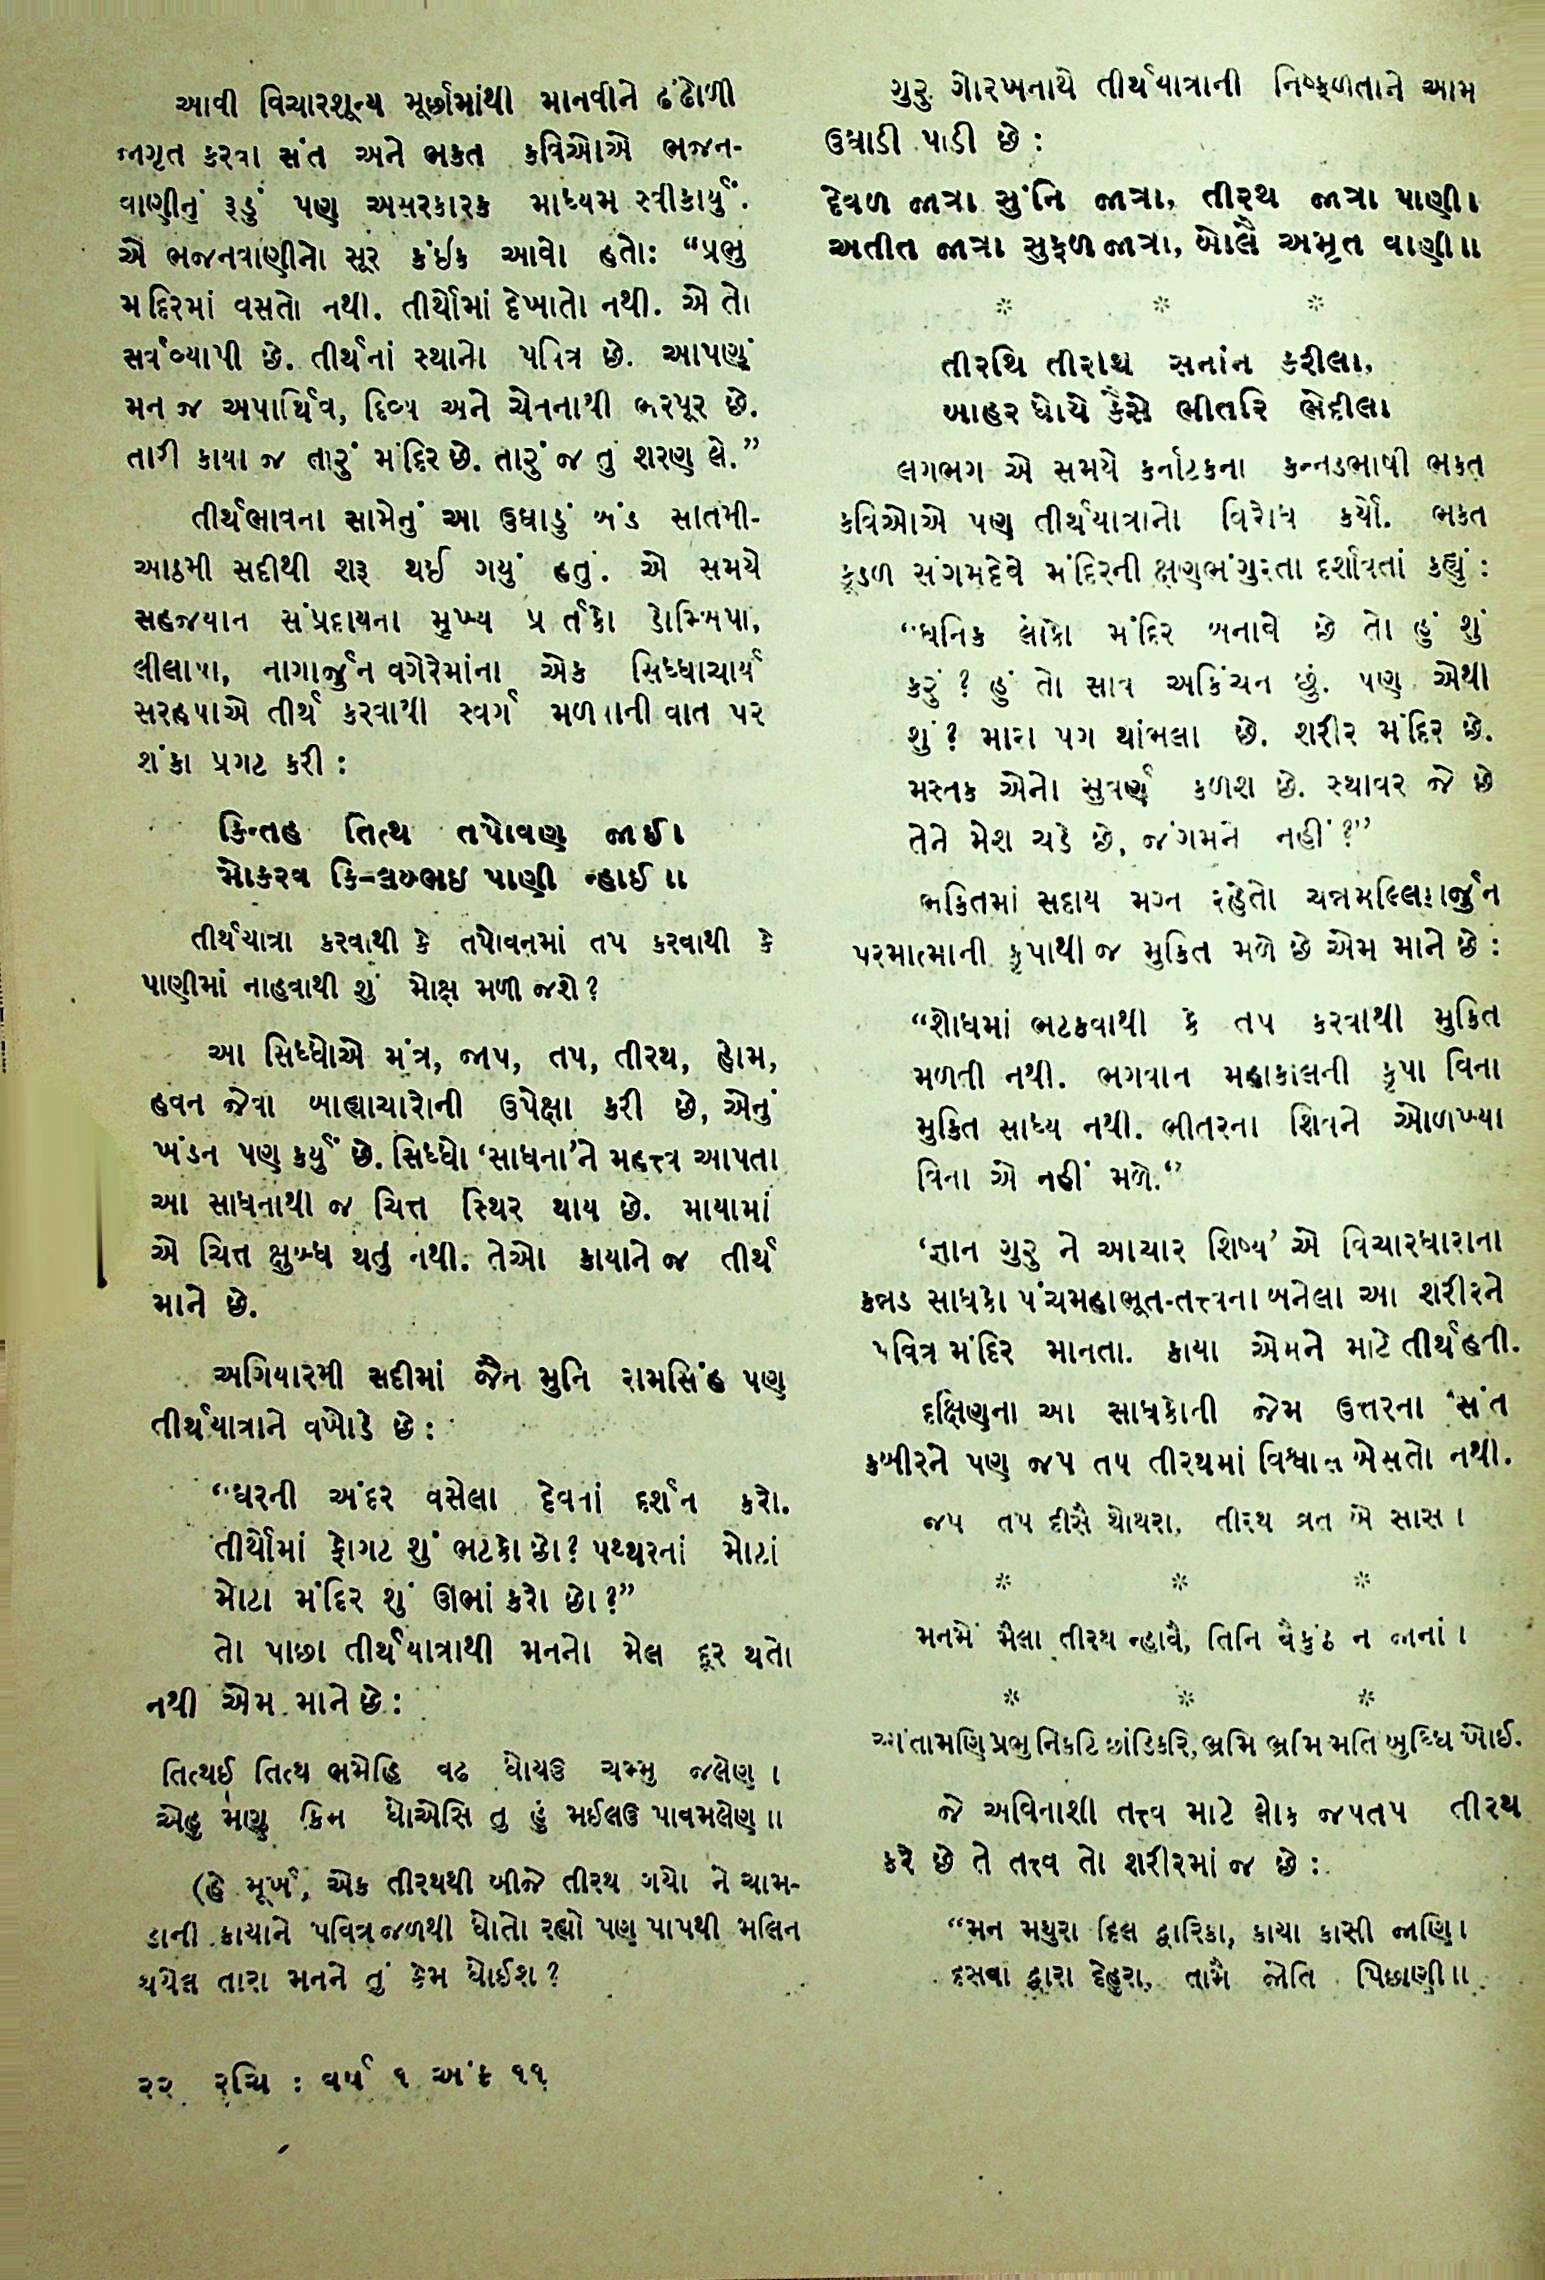 આવી વિચારશૂન્ય મૂર્છામાંથી માનવીને ઢંઢોળી
જાગૃત કરવા સંત અને ભક્ત કવિઓએ ભજન-
વાણીનું રૂડું પણ અસરકારક માધ્યમ સ્વીકાર્યું.
એ ભજનવાણીનો સૂર કંઈક આવો હતો: “પ્રભુ
મંદિરમાં વસતો નથી. તીર્થોમાં દેખાતો નથી. એ તો
સર્વવ્યાપી છે. તીર્થનાં સ્થાનો પવિત્ર છે. આપણું
મન જ અપાર્થિવ, દિવ્ય અને ચેતનાથી ભરપૂર છે.
તારી કાયા જ તારું મંદિર છે. તારું જ તું શરણ લે.”
તીર્થભાવના સામેનું આ ઉઘાડું બંડ સાતમી-
આઠમી સદીથી શરૂ થઈ ગયું હતું. એ સમયે
સહજયાન સંપ્રદાયના મુખ્ય પ્રવર્તકો ડોમ્બિપા,
લીલાપા, નાગાર્જુન વગેરેમાંના એક સિધ્ધાચાર્ય
સરહપાએ તીર્થ કરવાથી સ્વર્ગ મળવાની વાત પર
શંકા પ્રગટ કરી :
કિન્તહ તિત્થ તપોવણ જાઈ।
મોકરવ કિ પાણી ન્હાઈ ॥
તીર્થયાત્રા કરવાથી કે તપોવનમાં તપ કરવાથી કે
પાણીમાં નાહવાથી શું મોક્ષ મળી જશે?
આ સિધ્ધોએ મંત્ર, જાપ, તપ, તીરથ, હોમ,
હવન જેવા બાહ્યાચારોની ઉપેક્ષા કરી છે, એનું
ખંડન પણ કર્યું છે. સિધ્ધો ‘સાધના’ને મહત્ત્વ આપતા
આ સાધનાથી જ ચિત્ત સ્થિર થાય છે. માયામાં
એ ચિત્ત ક્ષુબ્ધ થતું નથી. તેઓ કાયાને જ તીર્થ
માને છે.
અગિયારમી સદીમાં જૈન મુનિ રામસિંહ પણ
તીર્થયાત્રાને વખોડે છે :
“ઘરની અંદર વસેલા દેવનાં દર્શન કરો.
તીર્થોમાં ફોગટ શું ભટકો છો? પથ્થરનાં મોટાં
મોટા મંદિર શું ઊભાં કરો છો?”
તો પાછા તીર્થયાત્રાથી મનનો મેલ દૂર થતો
નથી એમ માને છે :
તિત્થઈ તિત્થ ભમેહિ વઢ ધોયઉ ચમ્મુ જલેણ ।
એહુ મણુ કિમ ધોએસિ તુ હું મઈલઉ પાવમલેણ ॥
(હે મૂર્ખ, એક તીરથથી બીજે તીરથ ગયો ને ચામ-
ડાની કાયાને પવિત્ર જળથી ધોતો રહ્યો પણ પાપથી મલિન
થયેલ તારા મનને તું કેમ ધોઈશ?
૨૨ રચિ : વર્ષ ૧ અંક ૧૧
ગુરુ ગોરખનાથે તીર્થયાત્રાની નિષ્ફળતાને આમ
ઉઘાડી પાડી છે :
દેવળ જાત્રા સુંનિ જાત્રા, તીરથ જાત્રા પાણી।
અતીત જાત્રા સુફળ જાત્રા, બોલૈ અમૃત વાણી॥
* * *
તીરથિ તીરથિ સનાંન કરીલા,
બાહર ધોયે કૈસે ભીતરિ ભેદીલા
લગભગ એ સમયે કર્નાટકના કન્નડભાષી ભક્ત
કવિઓએ પણ તીર્થયાત્રાનો વિરોધ કર્યો. ભક્ત
કૂડળ સંગમદેવે મંદિરની ક્ષણભંગુરતા દર્શાવતાં કહ્યું :
“ધનિક લોકો મંદિર બનાવે છે તો હું શું
કરું ? હું તો સાવ અકિંચન છું. પણ એથી
શું ? મારા પગ થાંભલા છે. શરીર મંદિર છે.
મસ્તક એનો સુવર્ણ કળશ છે. સ્થાવર જે છે
તેને મેશ ચડે છે, જંગમને નહીં ?”
ભકિતમાં સદાય મગ્ન રહેતો ચન્નમલ્લિકાર્જુન
પરમાત્માની કૃપાથી જ મુકિત મળે છે એમ માને છે :
“શોધમાં ભટકવાથી કે તપ કરવાથી મુકિત
મળતી નથી. ભગવાન મહાકાલની કૃપા વિના
મુકિત સાધ્ય નથી. ભીતરના શિવને ઓળખ્યા
વિના એ નહીં મળે.“
‘જ્ઞાન ગુરુ ને આચાર શિષ્ય’ એ વિચારધારાના
કન્નડ સાધકો પંચમહાભૂત-તત્ત્વના બનેલા આ શરીરને
પવિત્ર મંદિર માનતા. કાયા એમને માટે તીર્થ હતી.
દક્ષિણના આ સાધકોની જેમ ઉત્તરના સંત
કબીરને પણ જપ તપ તીરથમાં વિશ્વાસ બેસતો નથી.
જપ તપ દીસૈ થોથરા, તીરથ વ્રત બે સાસ ।
* * *
મનમેં મૈલા તીરથ ન્હાવૈ, તિનિ વૈકુંઠ ન જાનાં ।
* * *
પ્રભુ નિકટિ છાંડિકરિ, ભ્રમિ ભ્રમિ મતિ બુધ્ધિ ખોઈ.
જે અવિનાશી તત્ત્વ માટે લોક જપતપ તીરથ
કરે છે તે તત્ત્વ તો શરીરમાં જ છે :
“મન મથુરા દિલ દ્વારિકા, કાયા કાસી જાણિ।
દસવાં દ્વારા દેહુરા, તામૈ જોતિ પિછાણી॥